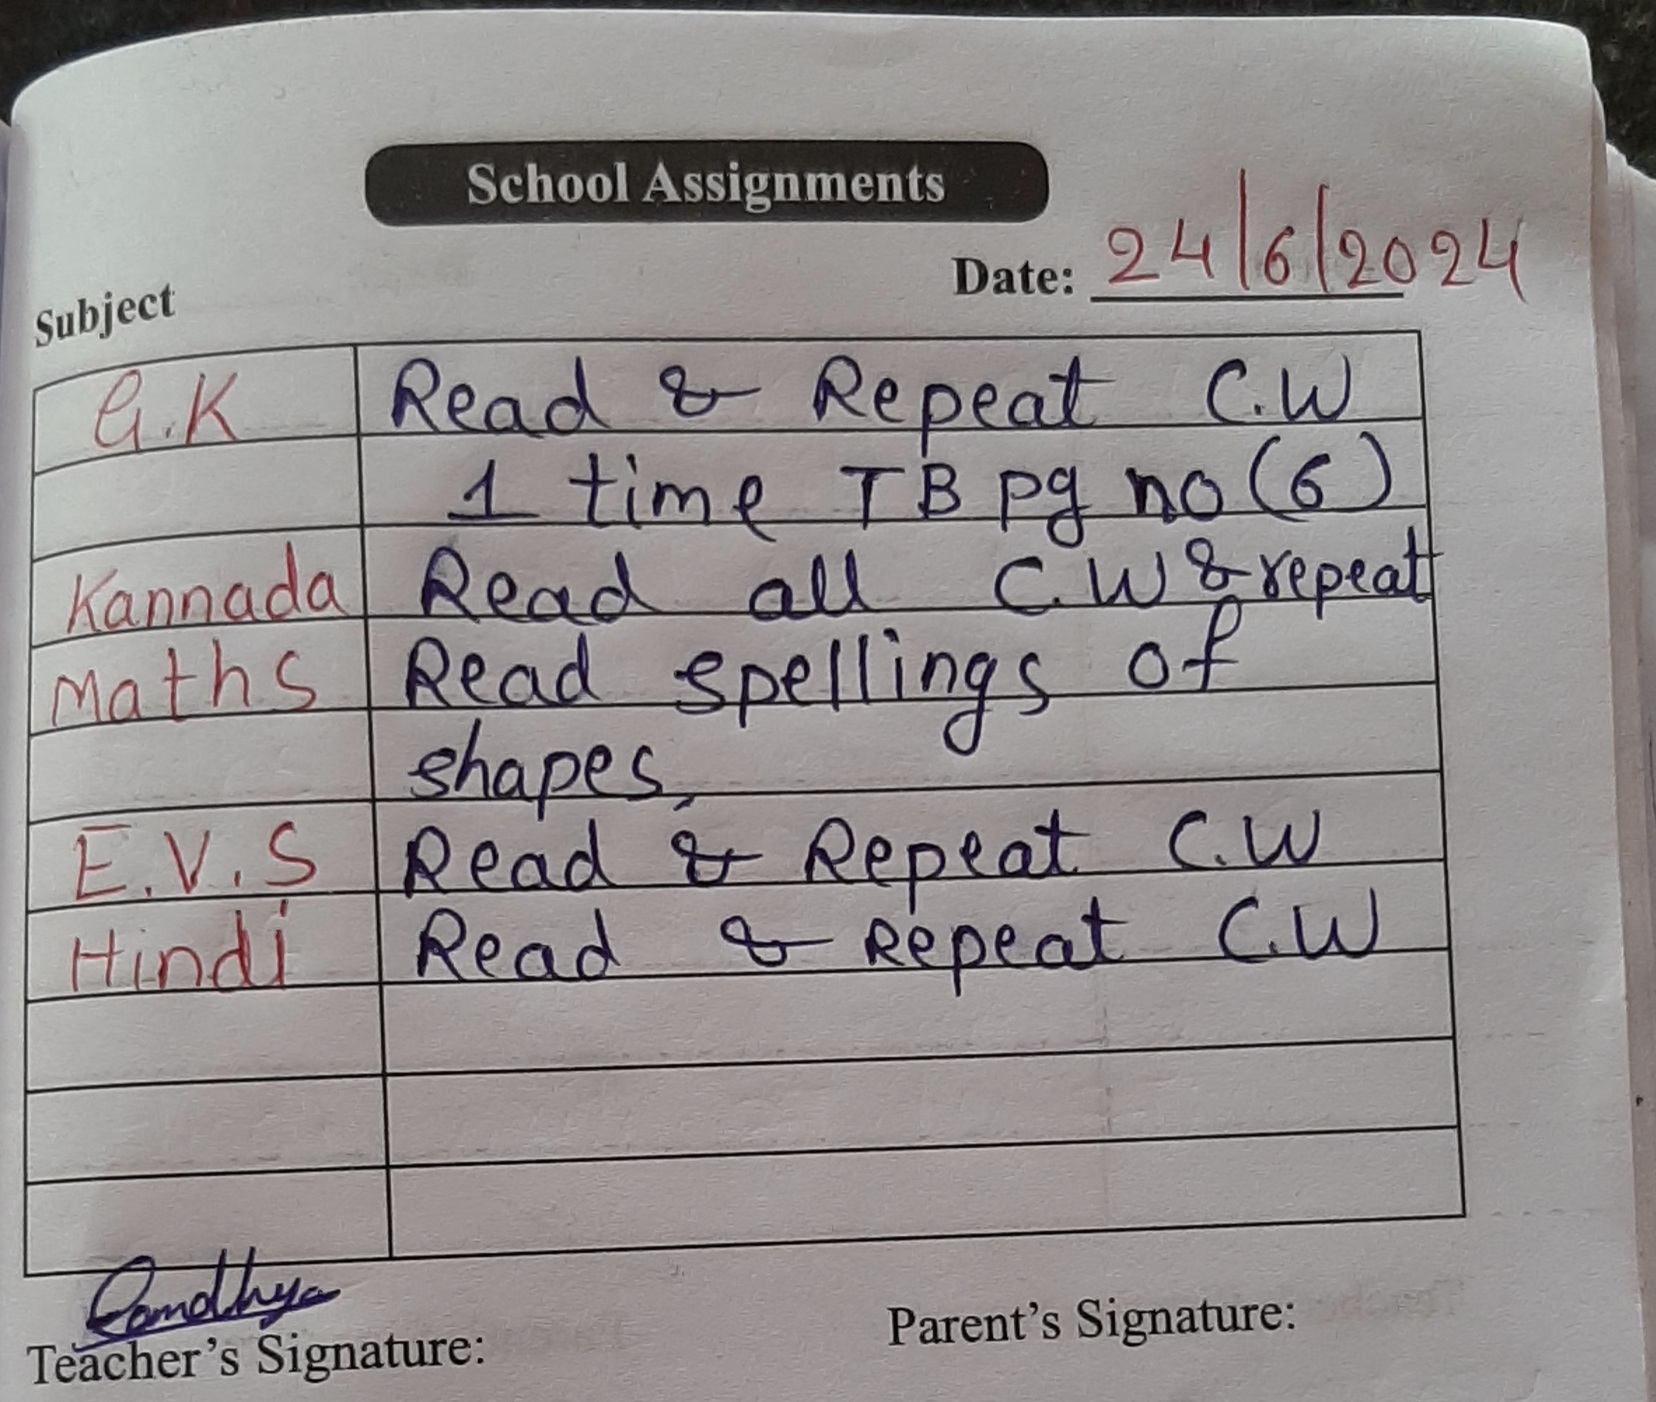 School Assignments
Date: 24/6/2024
Subject
G.K Read & Repeat C.W
1 time TB pg no (6)
Kannada Read all C.W & repeat
Maths Read spellings of
shapes,
E.V.S Read & Repeat C.W
Hindi Read & Repeat C.W
Teacher's Signature: Parent's Signature: